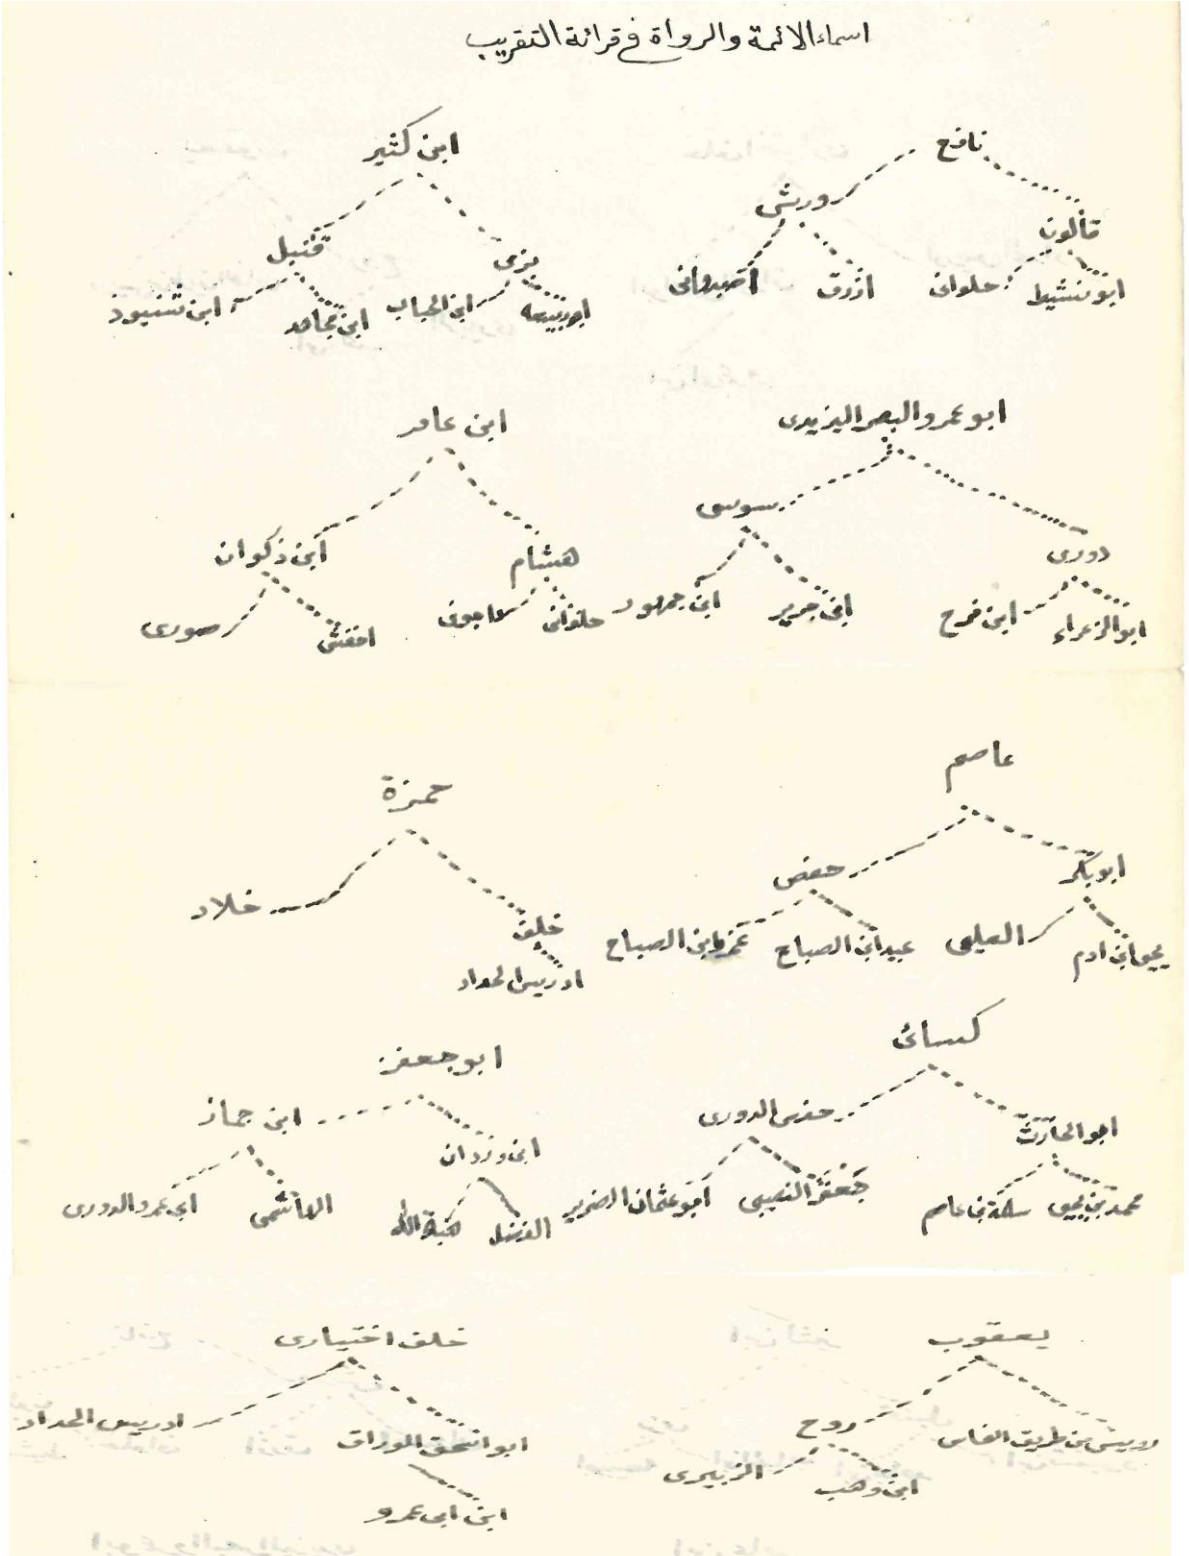 اسماء الائمة والرواة فى قرائة التقريب
نافع
قالون
ورش
ابو نشيط
حلوانى
ازرق
اصبهانى
ابن كثير
بزى
قنبل
ابو ربيعه
ابن الحباب
ابن مجاهد
ابن شنبوذ
ابو عمرو البصر اليزيدى
دورى
سوسى
ابو الزعراء
ابن فرح
ابن جرير
ابن جمهور
ابن عامر
هشام
ابن ذكوان
حلوانى
داجونى
اخفش
صورى
عاصم
ابو بكر
حفص
يحيى ابن ادم
العليمى
عبيد ابن الصباح
عمرو ابن الصباح
حمزة
خلف
خلاد
ادريس الحداد
كسائى
ابو الحارث
حفص الدورى
محمد بن يحيى
سلمة بن عاصم
جعفر النصيبى
ابو عثمان الضرير
ابو جعفر
ابن وردان
ابن جماز
الفضل
هبة الله
الهاشمى
ابى عمرو الدورى
يعقوب
رويس من طريق النخاس
روح
ابن وهب
الزبيرى
خلف اختيارى
ابو اسحق الوراق
ادريس الحداد
ابن ابى عمرو